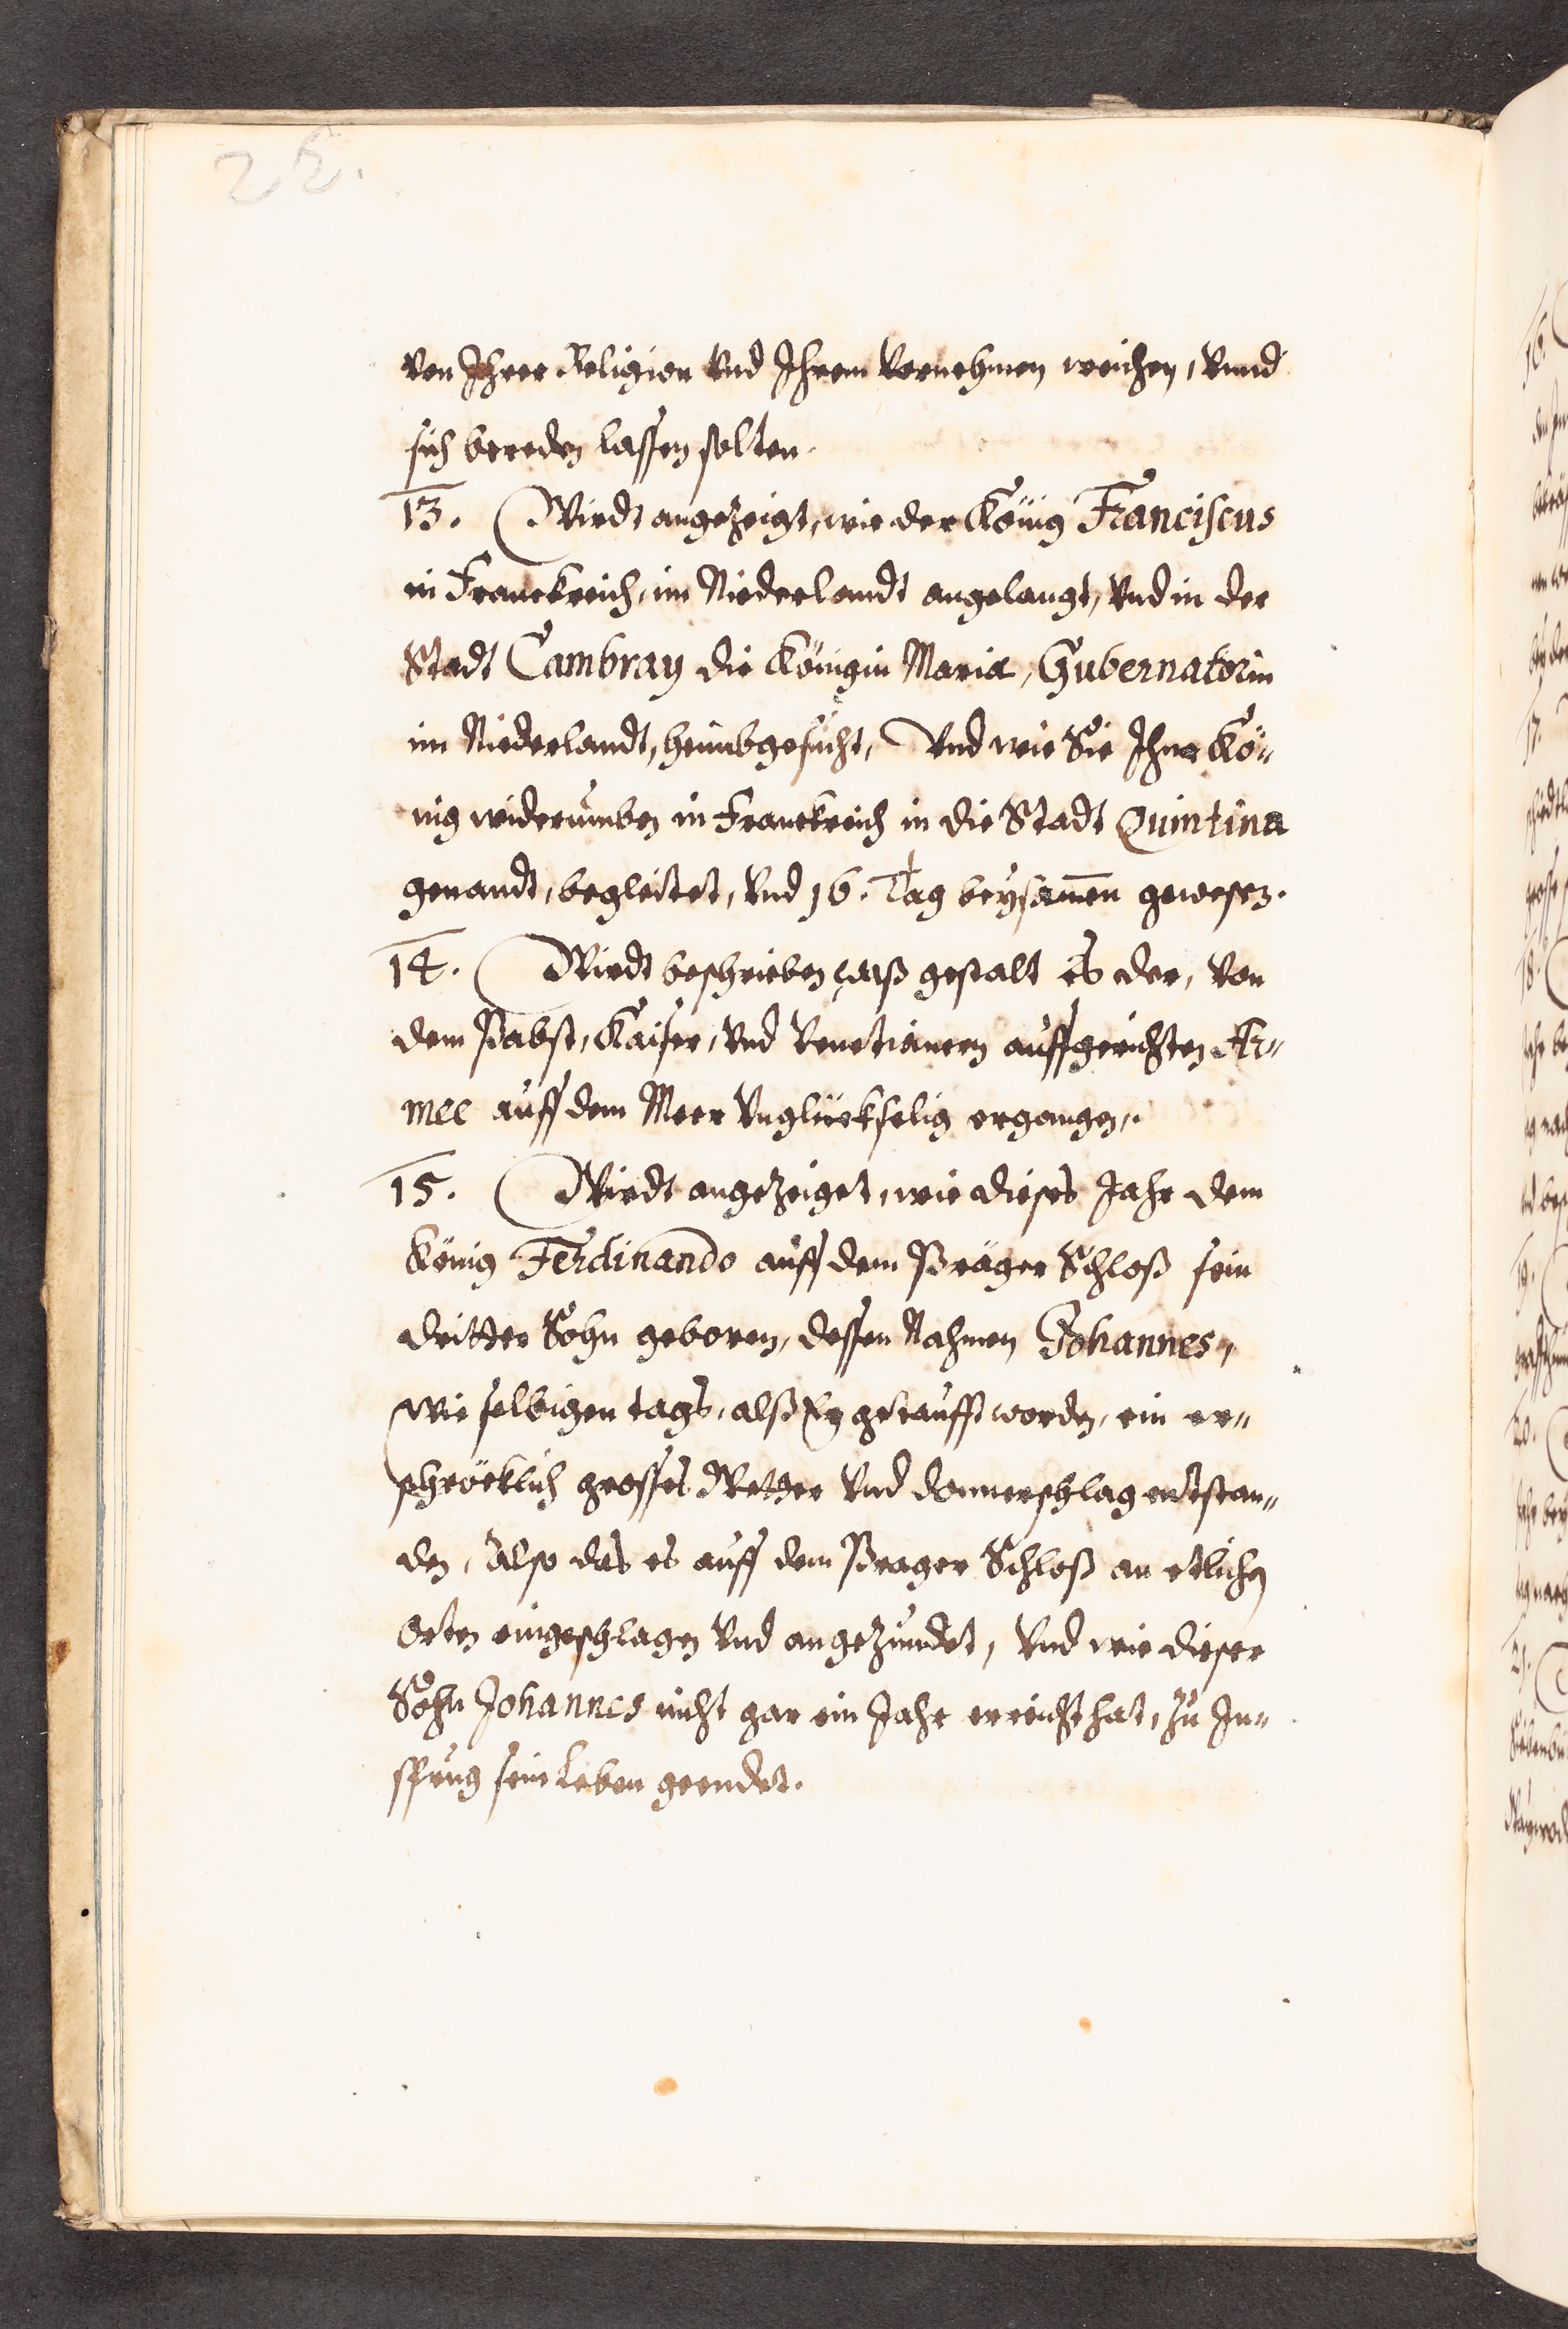 25.
von Ihrer Religion vnd Ihrem vornehmen weichen, vnnd
sich bereden lassen solten.
13. Wirdt angezeigt, wie der König Franciscus
in Franckreich, im Niederlandt angelangt, vnd in der
Stadt Cambray die Königin Maria, Gubernatorin
im Niederlandt, heimbgesucht, Vnd wie Sie Ihne Kö-
nig widerumben in Franckreich in die Stadt Quintina
genandt, begleitet, vnd 16. Tag beysam̄en gewesen.
14. Wirdt beschrieben waß gestalt es der, von
dem Pabst, Kaiser, vnd Venetianern auffgerichten Ar-
mee auff dem Meer vnglückselig ergangen.
15. Wirdt angezeiget, wie dieses Jahr dem
König Ferdinando auff dem Prager Schloß sein
dritter Sohn geboren, dessen Nahmen Johannes,
wie selbigen tags, alß Er getaufft worden, ein er-
schröcklich grosses Wetter vnd donnerschlag entstan-
den, Also das es auff dem Prager Schloß an etlichen
Orten eingeschlagen vnd angezundet, vnd wie dieser
Sohn Johannes nicht gar ein Jahr erreicht hat, zu In-
sprug sein Leben geendet.